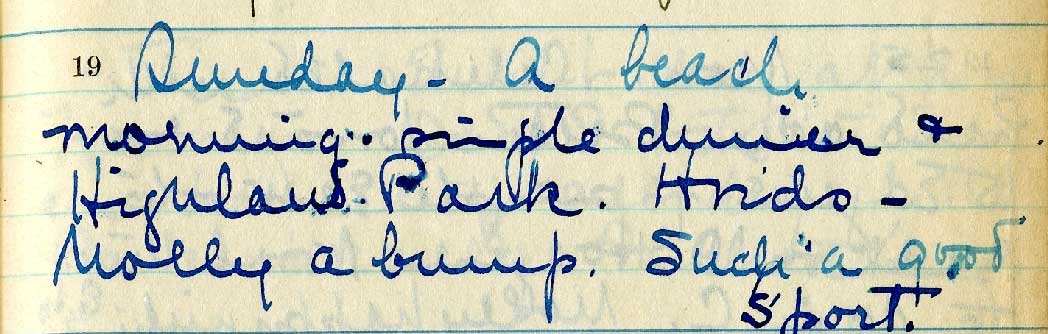 19 Sunday - A beach
morning. simple dinner &
Highland Park.
Molly a bump. Such a good
sport.